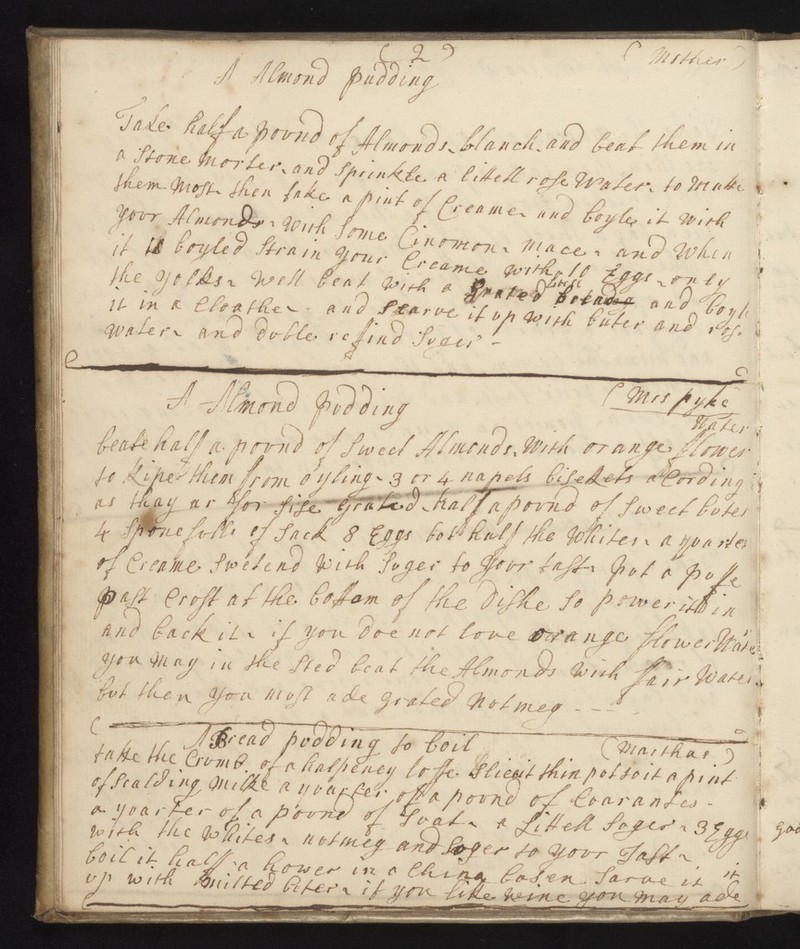 ( 2 )
( Mother )
A Almond pudding
Take half a povnd of Almonds blanch and beat them in
a Stone morter and Sprinkle a littell rose Water to make
them Most then take a pint of Creame and boyle it With
yovr Almonds With Some Cinomon mace and When
it is boyled Strain yovr Creame with 10 Eggs only
the yolks Well beat with a grated and boyle
it in a Cloathe and Searve it vp with bvter and rose
Water and dvble refind Svger
A Almond pvdding
( Mrs pyke
Water
beate half a povnd of Sweet Almonds With orange flower
to kipe them from oyling 3 or 4 napels biskets acording
as thay ar for Sise grated half a povnd of Sweet bvter
4 Sponefvlls of Sack 8 Eggs bvt half the Whites a qvarter
of Creame Swetend With Svger to yovr tast pvt a pvffe
past Crost at the bottom of the Dishe So power it in
and back it if yov doe not love orange flower Water
yov may in the Sted beat the Almonds With fair Water
bvt then yov mvst ade grated notmeg
A Bread pvdding to boil
( Marthas )
take the Crvmb of a halfpeney lofe Slice it thin pvt to it a pint
of Scalding milke a qvarter of a povnd of Coarantes
a qvarter of a povnd of Svat a Littell Svger 3 Eggs
with the Whites notmeg and Svger to yovr Tast
boil it half a hower in a China bason Sarve it
vp with milted bvter if yov like wine yov may ade it